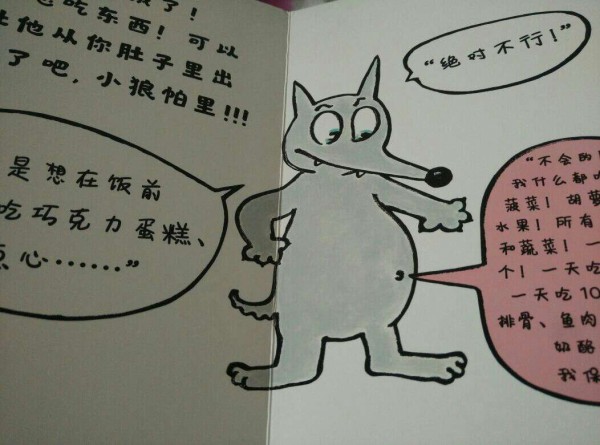 也吃东西！可以
让他从你肚子里出
了吧，小狼帕里!!!
是想在饭前
吃巧克力蛋糕、
点心……”
“绝对不行！”
“不会的！
我什么都
菠菜！胡萝
水果！所有
和蔬菜！一
个！一天吃
一天吃10
排骨、鱼肉
奶酪
我保